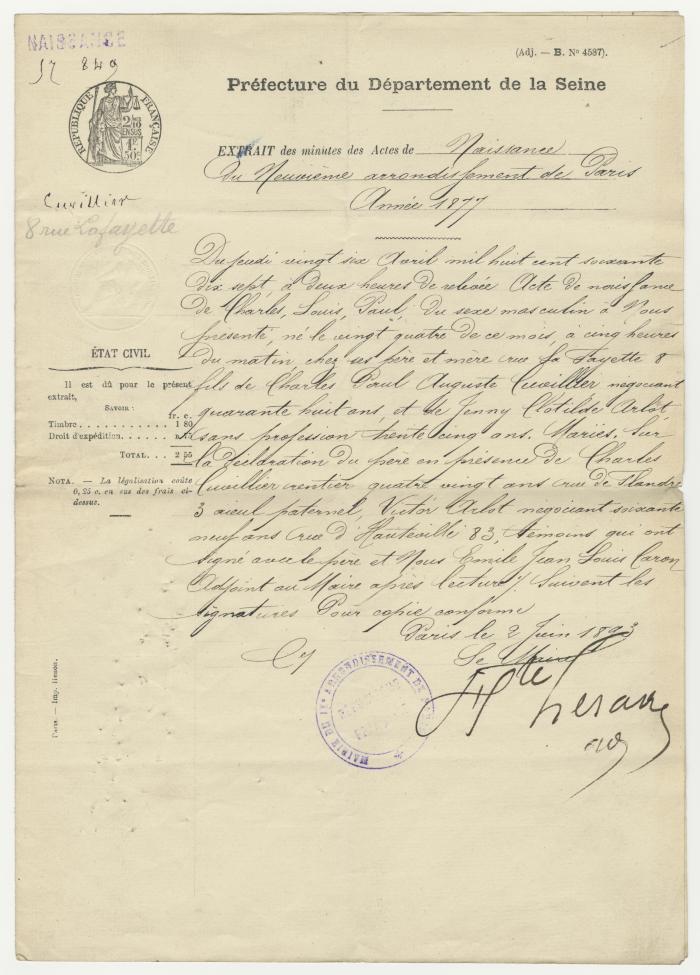 NAISSANCE
849
(Adj. — B. Nº 4587)
Préfecture du Département de la Seine
RÉPUBLIQUE FRANÇAISE
2/10 EN SUS
1F 50c
EXTRAIT des minutes des Actes de Naissance
du Neuvième arrondissement de Paris
Année 1877
Cuvillier
8 rue Lafayette
Du jeudi vingt six Avril mil huit cent soixante
dix sept, à deux heures de relevée Acte de naissance
de Charles, Louis, Paul, du sexe masculin à Nous
présenté, né le vingt quatre de ce mois, à cinq heures
du matin, chez ses père et mère rue La Fayette 8
fils de Charles Paul Auguste Cuvillier negociant
quarante huit ans, et de Jenny Clotilde Arlot
sans profession trente cinq ans. Mariés. Sur
la déclaration du père en présence de Charles
Cuvillier rentier quatre vingt ans rue de Flandre
3 aieul paternel, Victor Arlot negociant soixante
neuf ans rue d'Hauteville 83, témoins qui ont
signé avec le père et Nous Emile Jean Louis Caron
Adjoint au Maire après lecture /. Suivent les
signatures Pour copie conforme
Paris le 2 Juin 1893
Le Maire
ÉTAT CIVIL
Il est dû pour le présent
extrait,
Savoir :
fr. c.
Timbre. . . . . . . . . . . 1 80
Droit d'expédition. . . . . . » 75
TOTAL. . . 2 55
NOTA. — La légalisation coûte
0,25 c. en sus des frais ci-
dessus.
MAIRIE DU IXe ARRONDISSEMENT DE PARIS